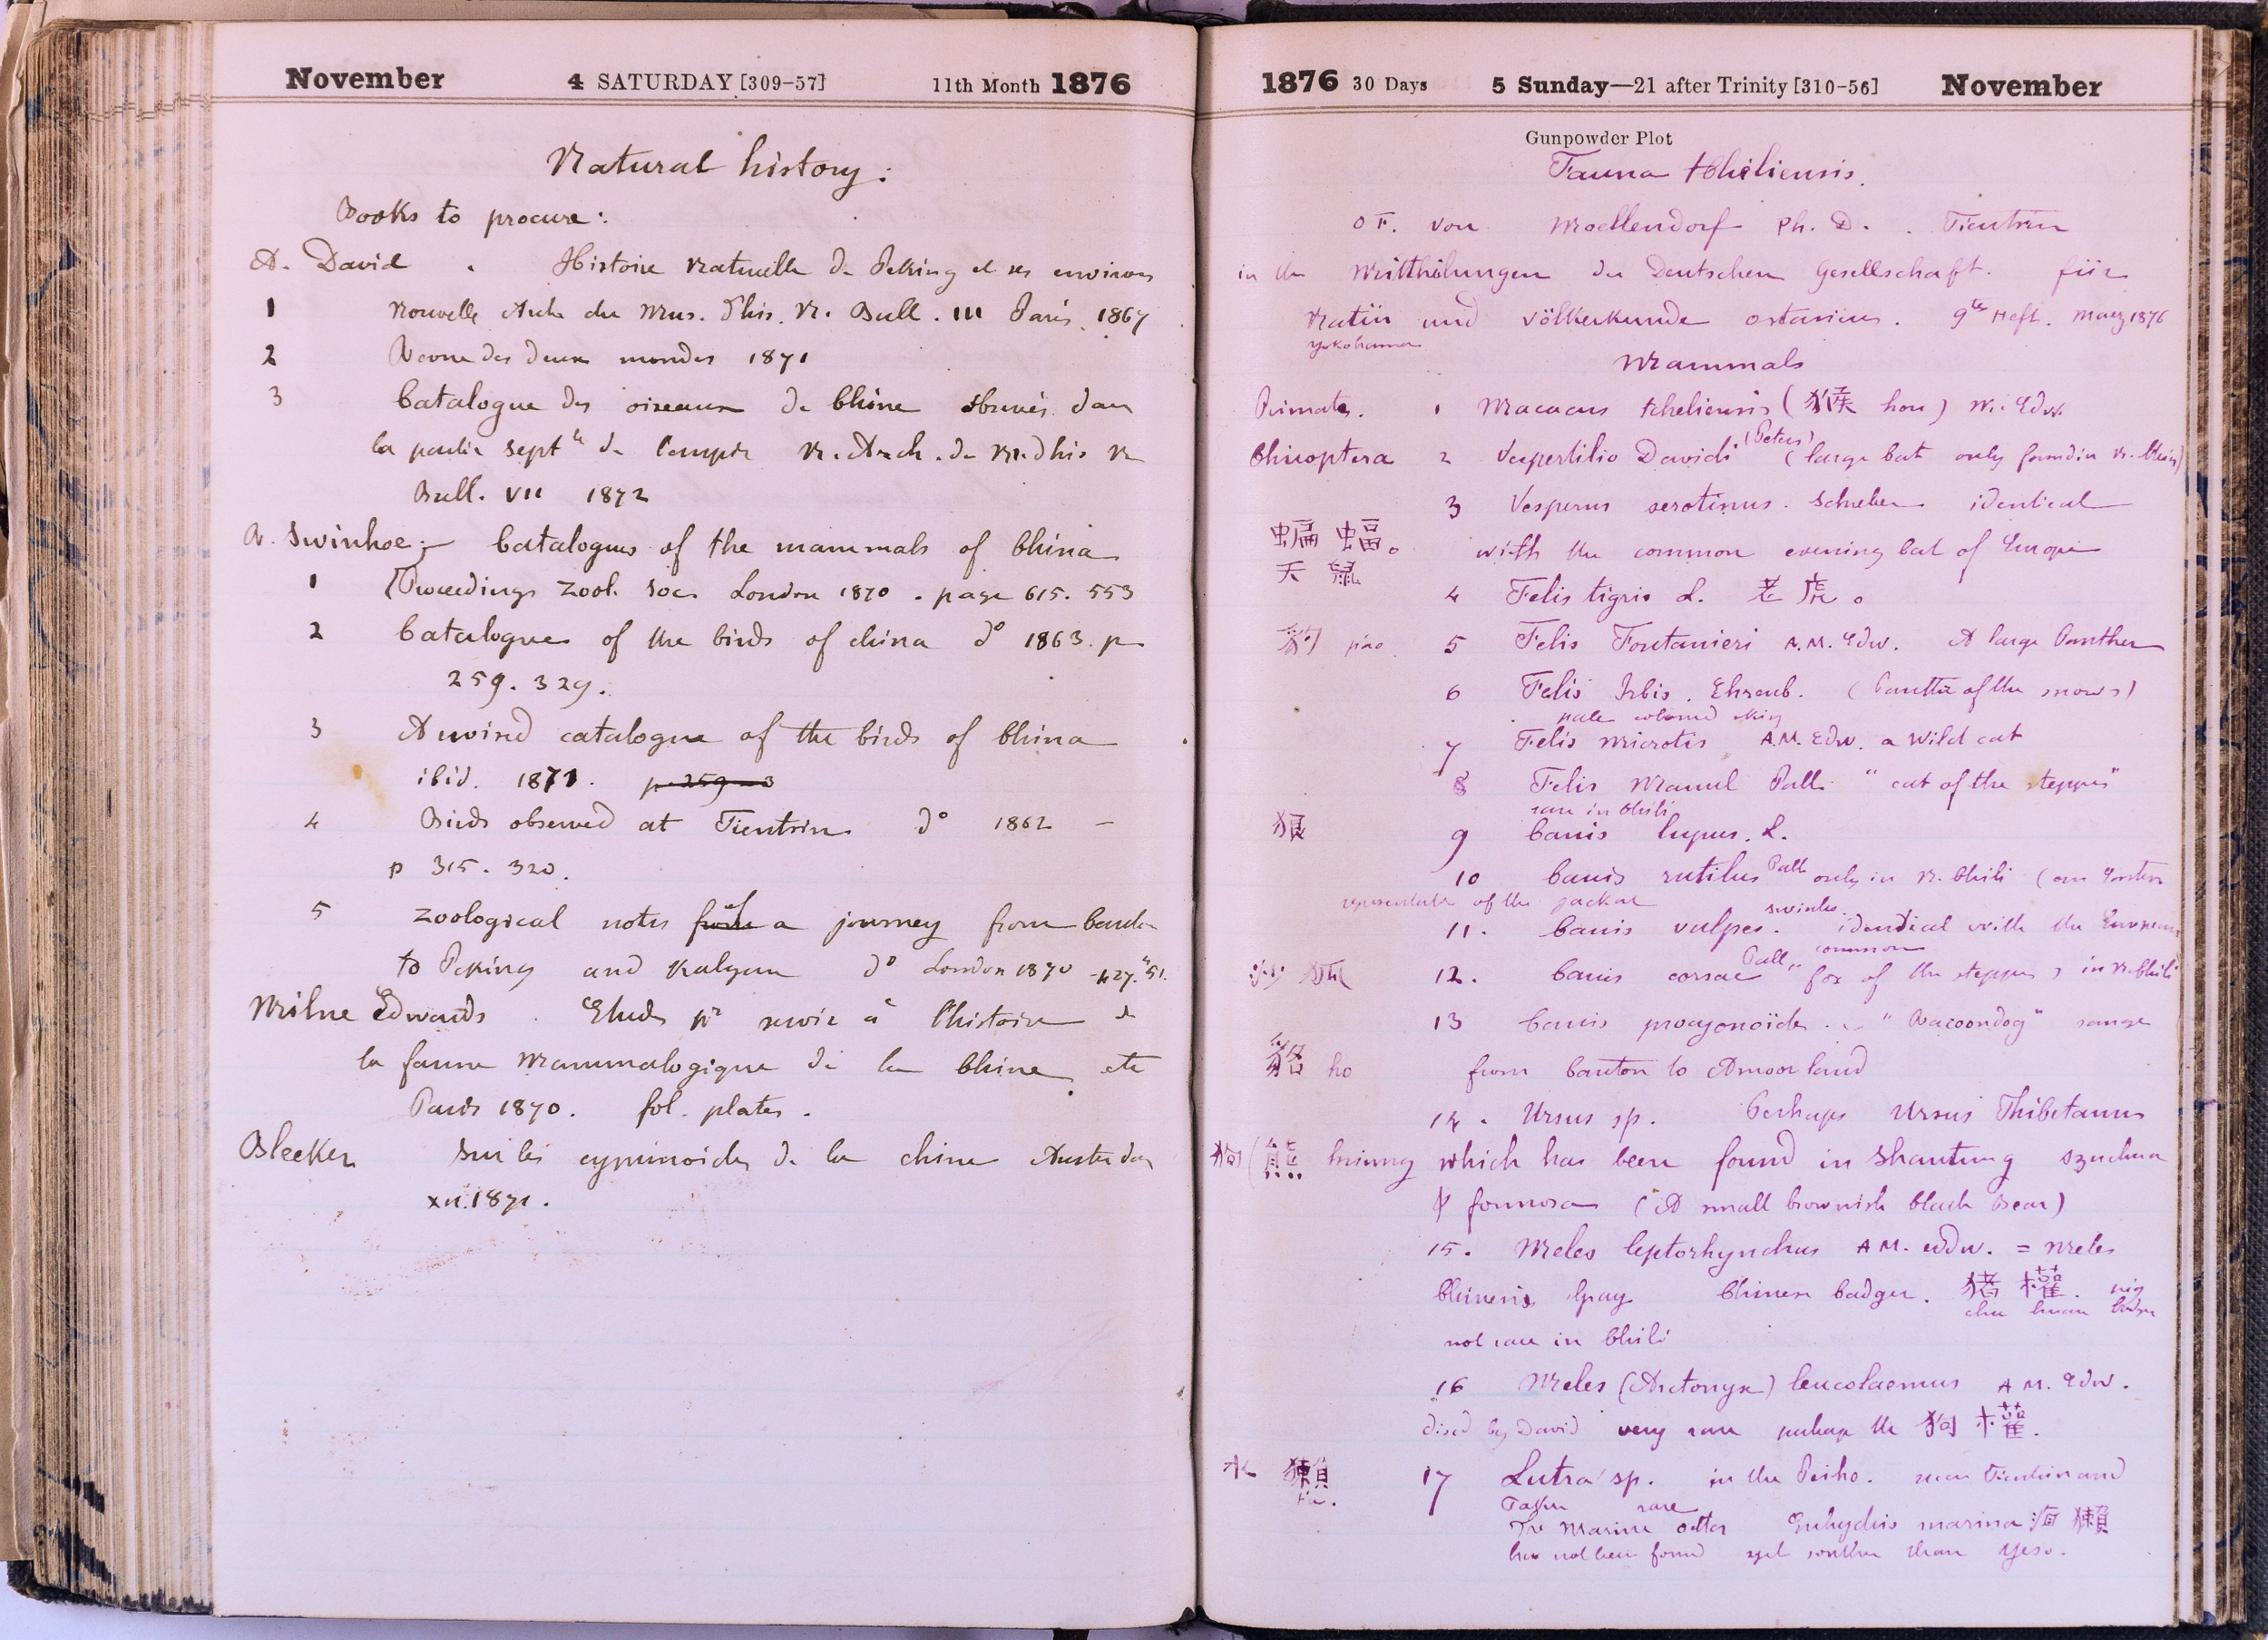 November 4 SATURDAY [309-57] 11th Month 1876
Natural history:
Books to procure:
A. David . Histoire naturelle de Peking et ses environs
1 Nouvelle Arch du Mus. d'his. N. Bull. III Paris 1867
2 Revue des deux mondes 1871
3 Catalogue des oiseaux de Chine observés dans
la partie septle de l'empire N. Arch. du M. d'his N
Bull. VII 1872
R. Swinhoe; Catalogues of the mammals of China
1 Proceedings Zool. Soc. London 1870 . page 615. 553
2 Catalogues of the birds of China do 1863. p
259. 329.
3 A revised catalogue of the birds of China
ibid. 1871. p. 259
4 Birds observed at Tientsin do 1862 –
p 315. 320.
5 Zoological notes from of a journey from Canton
to Peking and Kalgan do London 1870 427. "51.
Milne Edwards . Etudes pr servir à l'histoire de
la faune Mammalogique de la Chine etc
Paris 1870. fol. plates.
Bleeker Sur les cyprinoides de la Chine Amsterdam
XII. 1871.
1876 30 Days 5 Sunday—21 after Trinity [310-56] November
Gunpowder Plot
Fauna tcheliensis.
O F. von Moellendorf Ph. D. . Tientsin
in the Mittheilungen der Deutschen Gesellschaft. für
Natur und Völkerkunde ostasiens. 9tes Heft. Maerz 1876
Yokohama
Mammals
Primates. 1 Macacus tcheliensis (猴 hou) M. Edw.
Chiroptera 2 Vespertilio Davidi (Peters) (large bat only found in N. China)
3 Vesperus serotinus. Schreber identical
蝙蝠。 with the common evening bat of Europe
天鼠
4 Felis tigris L. 老虎。
豹 pao 5 Felis Fontanieri A.M. Edw. A large Panther
6 Felis Irbis. Ehrenb. (Panther of the snows)
pale coloured skin
7 Felis Microtis A.M. Edw. a wild cat
8 Felis Manul Pall. "cat of the steppes"
rare in Chili
狼 9 Canis lupus. L.
10 Canis rutilus Pall only in N. Chili (an Eastern
representative of the jackal
11. Canis vulpes. Swinhoe. identical with the European
common
沙狐 12. Canis corsac Pall. "fox of the steppes, in N. Chili
13 Canis procyonoïdes. "Racoondog" range
貉 ho from Canton to Amoor land
14. Ursus sp. Perhaps Ursus Thibetanus
狗(熊 hsiung which has been found in Shantung Szuchuan
& formosa (A small brownish black bear)
15. Meles leptorhynchus A M. Edw. = Meles
Chinensis Gray Chinese badger. 猪權. pig
chu huan badger
not rare in Chili
16 Meles (Arctonyx) leucolaemus A M. Edw.
discd by David very rare perhaps the 狗權.
水獺 17 Lutra sp. in the Peiho. near Tientsin and
Taku rare
The Marine otter Enhydris marina 海獺
has not been found yet souther than Yeso.